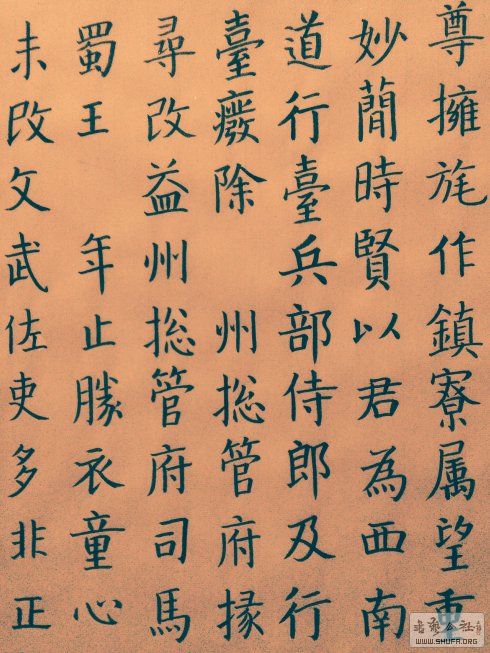 尊擁旄作鎮寮属望重
妙簡時賢以君為西南
道行臺兵部侍郎及行
臺癈除 州捴管府掾
尋改益州捴管府司馬
蜀王 年止勝衣童心
未改文武佐吏多非正
WWW.SHUFA.ORG